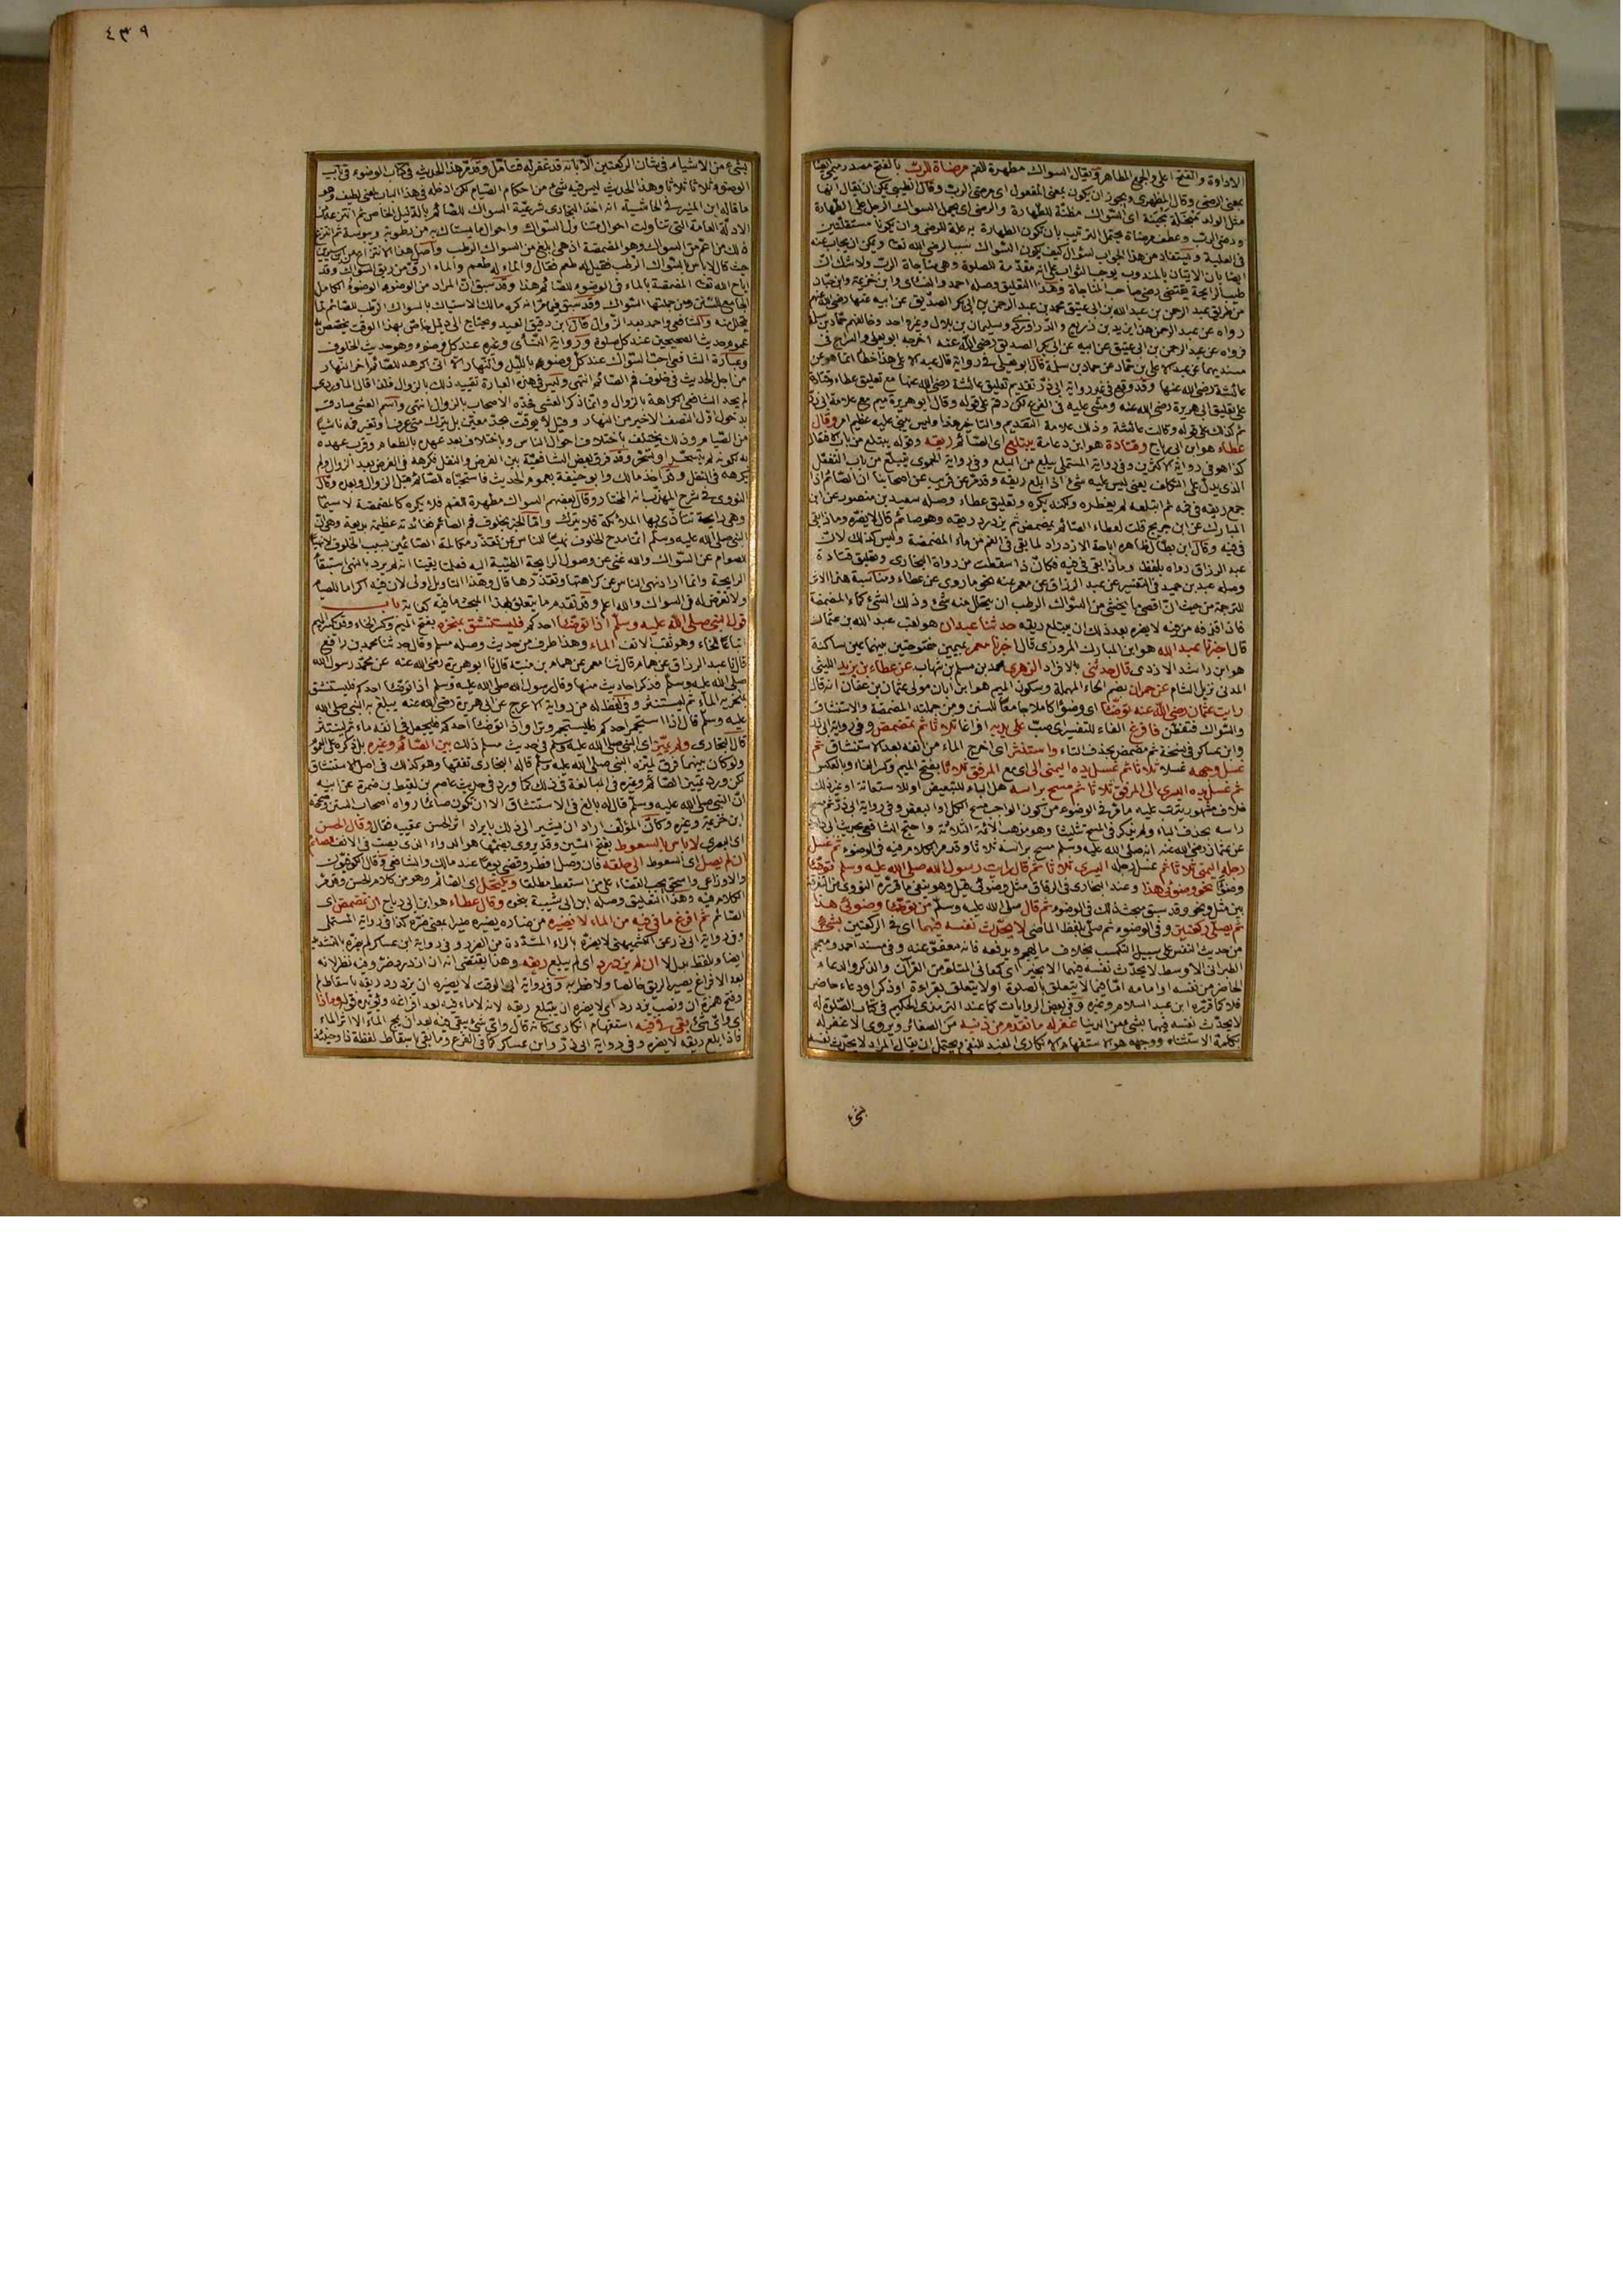 الاداوة والفتح اعلى والجمع المطاهر ويقال السواك مطهرة للفم مرضاة للرب بالفتح مصدر ميمي ايضا
بمعنى الرضى وقال المظهرى ويجوز ان يكون بمعنى المفعول اى مرضى الرب وقال الطيبى يمكن ان يقال انها
مثل الولد مبخلة مجبنة اى السواك مظنة للطهارة والرضى اى يحمل السواك الرجل على الطهارة
ورضى الرب وعطف مرضاة يحتمل الترتيب بان يكون الطهارة به علة للرضى وان يكونا مستقلتين
فى العلية
ايضا بان الاتيان بالمندوب يوجب الثواب على انه مقدمة للصلوة وهى مناجاة الرب ولا شك ان
طيب الرايحة يقتضى رضى صاحب المناجاة وهذا التعليق وصله احمد والنسائى وابن خزيمة وابن حبان
من طريق عبد الرحمن بن عبد الله بن ابى عتيق محمد بن عبد الرحمن بن ابى بكر الصديق عن ابيه عنها رضى الله عنهم
رواه عن عبد الرحمن هذا يزيد بن زريع والدراوردى وسليمان بن بلال وغير واحد وخالفهم حماد بن سلمة
فرواه عن عبد الرحمن بن ابى عتيق عن ابيه عن ابى بكر الصديق رضى الله عنه اخرجه ابو يعلى والسراج فى
مسنديهما عن عبد الاعلى بن حماد عن حماد بن سلمة قال ابو يعلى فى رواية قال عبد الاعلى هذا خطأ انما هو عن
عائشة رضى الله عنها وقد وقع فى غير رواية ابى ذر تقديم تعليق عائشة رضى الله عنها مع تعليق عطاء وقتادة
على تعليق ابى هريرة رضى الله عنه
عطاء هو ابن ابى رباح وقتادة هو ابن دعامة يبتلع اى الصائم ريقه وقوله يبتلع من باب الافتعال
كذا هو فى رواية الاكثرين وفى رواية المستملى يبلع من البلع وفى رواية الحموى يتبلع من باب التفعل
الذى يدل على التكلف يعنى ليس عليه شئ اذا بلع ريقه وقد مر عن قريب عن اصحابنا ان الصائم اذا
جمع ريقه فى فيه ثم ابتلعه لم يفطره ولكنه يكره وتعليق عطاء وصله سعيد بن منصور عن ابن
المبارك عن ابن جريج قلت لعطاء الصائم يمضمض ثم يزدرد ريقه وهو صائم قال لا يضره وماذا بقى
فى فيه وقال ابن بطال ظاهره اباحة الازدراد لما بقى فى الفم من ماء المضمضة وليس كذلك لان
عبد الرزاق رواه بلفظ وماذا بقى فى فيه فكان ذا سقطت من رواة البخارى وتعليق قتادة
وصله عبد بن حميد فى التفسير عن عبد الرزاق عن معمر عنه نحو ما روى عن عطاء ومناسبة هذا الاثر
للترجمة من حيث ان اقصى ما يخشى من السواك الرطب ان يتحلل منه شئ وذلك الشئ كماء المضمضة
فاذا قذفه من فيه لا يضره بعد ذلك ان يبتلع ريقه حدثنا عبدان هو لقب عبد الله بن عثمان
قال اخبرنا عبد الله هو ابن المبارك المروزى قال اخبرنا معمر بميمين مفتوحتين بينهما عين ساكنة
هو ابن راشد الازدى قال حدثنى بالافراد الزهرى محمد بن مسلم بن شهاب عن عطاء بن يزيد الليثى
المدنى نزيل الشام عن حمران بضم الحاء المهملة وسكون الميم هو ابن ابان مولى عثمان بن عفان انه قال
رايت عثمان رضى الله عنه توضأ اى وضوءا كاملا جامعا للسنن ومن جملته المضمضة والاستنشاق
والسواك فافرغ الفاء للتفسير اى صب على يديه افراغا ثلاثا ثم تمضمض وفى رواية ابى ذر
وابن عساكر فى نسخة ثم مضمض بحذف التاء واستنثر اى اخرج الماء من انفه بعد الاستنشاق ثم
غسل وجهه غسلا ثلاثا ثم غسل يده اليمنى الى اى مع المرفق ثلاثا بفتح الميم وكسر الفاء وبالعكس
ثم غسل يده اليسرى الى المرفق ثلاثا ثم مسح براسه هل الباء للتبعيض او للاستعانة او غير ذلك
خلاف مشهور يترتب عليه ما مر فى الوضوء من كون الواجب مسح الكل او البعض وفى رواية ابى ذر ثم مسح
راسه بحذف الباء ولم يذكر فى المسح تثليثا وهو مذهب الائمة الثلاثة واحتج الشافعى بحديث ابى داود
عن عثمان رضى الله عنه انه صلى الله عليه وسلم مسح براسه ثلاثا وقد مر الكلام فيه فى الوضوء ثم غسل
رجله اليمنى ثلاثا ثم غسل رجله اليسرى ثلاثا ثم قال رايت رسول الله صلى الله عليه وسلم توضأ
وضوءا نحو وضوئى هذا وعند البخارى فى الرقاق مثل وضوئى
بين مثل ونحو وقد سبق مبحث ذلك فى الوضوء ثم قال صلى الله عليه وسلم من توضأ وضوئى هذا
ثم يصلى ركعتين وفى الوضوء ثم صلى بلفظ الماضى لا يحدث نفسه فيهما اى فى الركعتين بشئ
من حديث النفس على سبيل التكسب بخلاف ما يهجم ويدفعه فانه معفو عنه وفى مسند احمد ومعجم
الطبرانى الاوسط لا يحدث نفسه فيهما الا بخير اى كمعانى المتلو من القرآن والذكر والدعاء
الحاضر من نفسه او امامه اما فيما لا يتعلق بالصلوة او لا يتعلق بقراءة او ذكر او دعاء حاضر
فلا كما قرره ابن عبد السلام وغيره وفى بعض الروايات كما عند الترمذى الحكيم فى كتاب الصلوة له
لا يحدث نفسه فيهما بشئ من الدنيا غفر له ما تقدم من ذنبه من الصغائر ويروى الا غفر له
بكلمة الاستثناء ووجهه هو الاستفهام الانكارى المفيد للنفى ويحتمل ان يقال المراد لا يحدث نفسه
بشئ
٤٣٩
بشئ من الاشياء فى شان الركعتين الا بانه قد غفر له فتامل وقد مر هذا الحديث فى كتاب الوضوء فى باب
الوضوء ثلاثا ثلاثا وهذا الحديث ليس فيه شئ من احكام الصيام لكن ادخله فى هذا الباب لمعنى لطيف وهو
ما قاله ابن المنير فى الحاشية انه اخذ البخارى شرعية السواك للصائم بالدليل الخاص ثم انتزعه من
الادلة العامة التى تناولت احوال متناول السواك واحوال ما يستاك به من رطوبة ويبوسة ثم انتزع
ذلك من اعم من السواك وهو المضمضة اذ هى ابلغ من السواك الرطب واصل هذا الانتزاع من ابن سيرين
حيث قال لا باس بالسواك الرطب فقيل له طعم فقال والماء له طعم والماء ارق من ريق السواك وقد
اباح الله تعالى المضمضة بالماء فى الوضوء للصائم هذا وقد سبق ان المراد من الوضوء الوضوء الكامل
الجامع للسنن ومن جملتها السواك وقد سبق فيما مر انه كره مالك الاستياك بالسواك الرطب للصائم لما
يتحلل منه والشافعى واحمد بعد الزوال قال ابن دقيق العيد ويحتاج الى دليل خاص بهذا الوقت يخصص به
عموم حديث الصحيحين عند كل صلوة ورواية النسائى وغيره عند كل وضوء وهو حديث الخلوف
وعبارة الشافعى احب السواك عند كل وضوء بالليل والنهار الا انى اكره للصائم اخر النهار
من اجل الحديث فى خلوف فم الصائم انتهى وليس فى هذه العبارة تقييد ذلك بالزوال فلذا قال الماوردى
لم يحد الشافعى الكراهة بالزوال وانما ذكر العشى فحده الاصحاب بالزوال انتهى واسم العشى صادق
بدخول اول النصف الاخير من النهار وقيل لا يوقت بحد معين بل يترك متى عرف ان تغير فمه ناشئا
من الصيام وذلك يختلف باختلاف احوال الناس وباختلاف بعد عهده بالطعام وقرب عهده
به لكونه لم يتسحر او تسحر وقد فرق بعض الشافعية بين الفرض والنفل فكرهه فى الفرض بعد الزوال ولم
يكرهه فى النفل وقد اخذ مالك وابو حنيفة بعموم الحديث فاستحباه للصائم قبل الزوال وبعده وقال
النووى فى شرح المهذب انه المختار وقال بعضهم السواك مطهرة للفم فلا يكره كالمضمضة لا سيما
وهى رايحة تتاذى بها الملائكة فلا تترك واما الخبر بخلوف فم الصائم ففائدته عظيمة بديعة وهى ان
النبى صلى الله عليه وسلم انما مدح الخلوف نهيا للناس عن تقذر مكالمة الصائمين بسبب الخلوف لا نهيا
للصوام عن السواك والله غنى عن وصول الرايحة الطيبة اليه فعلمنا يقينا انه لم يرد بالنهى استبقاء
الرايحة وانما اراد نهى الناس عن كراهتها وتقذرها قال وهذا التاويل اولى لان فيه اكراما للصيام
ولا تعرض له فى السواك والله اعلم وقد تقدم ما يتعلق بهذا المبحث ما فيه كفاية باب
قول النبى صلى الله عليه وسلم اذا توضأ احدكم فليستنشق بمنخره بفتح الميم وكسر الخاء وقد تكسر الميم
اتباعا للخاء وهو ثقب الانف الماء وهذا طرف من حديث وصله مسلم وقال حدثنا محمد بن رافع
قال ثنا عبد الرزاق بن همام قال ثنا معمر عن همام بن منبه قال ثنا ابو هريرة رضى الله عنه عن محمد رسول الله
صلى الله عليه وسلم فذكر احاديث منها وقال رسول الله صلى الله عليه وسلم اذا توضأ احدكم فليستنشق
بمنخريه الماء ثم ليستنثر وفى لفظ له من رواية الاعرج عن ابى هريرة رضى الله عنه يبلغ به النبى صلى الله
عليه وسلم قال اذا استجمر احدكم فليستجمر وترا واذا توضأ احدكم فليجعل فى انفه ماء ثم لينتثر
قال البخارى ولم يميز اى النبى صلى الله عليه وسلم فى حديث مسلم ذلك بين الصائم وغيره بل ذكره على العموم
ولو كان بينهما فرق لميزه النبى صلى الله عليه وسلم قاله البخارى تفقها وهو كذلك فى اصل الاستنشاق
لكن ورد تمييز الصائم وغيره فى المبالغة فى ذلك كما ورد فى حديث عاصم بن لقيط بن صبرة عن ابيه
ان النبى صلى الله عليه وسلم قال له بالغ فى الاستنشاق الا ان تكون صائما رواه اصحاب السنن وصححه
ابن خزيمة وغيره وكأن المؤلف اراد ان يشير الى ذلك بايراد اثر الحسن عقيبه فقال وقال الحسن
اى البصرى لا باس بالسعوط بفتح السين وقد يروى بضمها هو الدواء الذى يصب فى الانف للصائم
ان لم يصل اى السعوط الى حلقه فان وصل افطر وقضى يوما عند مالك والشافعى وقال الكوفيون
والاوزاعى واسحق يجب القضاء على من استعط مطلقا ويكتحل اى الصائم وهو من كلام الحسن وقد مر
الكلام فيه وهذا التعليق وصله ابن ابى شيبة نحوه وقال عطاء هو ابن ابى رباح ان تمضمض اى
الصائم ثم افرغ ما فى فيه من الماء لا يضيره من ضاره يضيره ضيرا بمعنى ضره كذا فى رواية المستملى
وفى رواية ابى ذر عن الكشميهنى لا يضره بالراء المشددة من الضرر وفى رواية ابن عساكر لم يضره بالتشديد
ايضا وبلفظ بدل لا ان لم يزدرد اى لم يبلع ريقه وهذا يقتضى انه ان ازدرد ضر وفيه نظر لانه
بعد الافراغ يصير الريق خالصا ولا فطر به وفى رواية ابى الوقت لا يضيره ان يزدرد ريقه باسقاط لم
وفتح همزة ان ونصب يزدرد اى لا يضره ان يبتلع ريقه لانه لا ماء فيه بعد افراغه قوله وماذا
اى واى شئ بقى فى فيه استفهام انكارى كانه قال واى شئ يبقى فى فيه بعد ان يمج الماء الا اثر الماء
فاذا بلع ريقه لا يضره وفى رواية ابى ذر وابن عساكر كما فى الفرع وما بقى باسقاط لفظة ذا وحينئذ